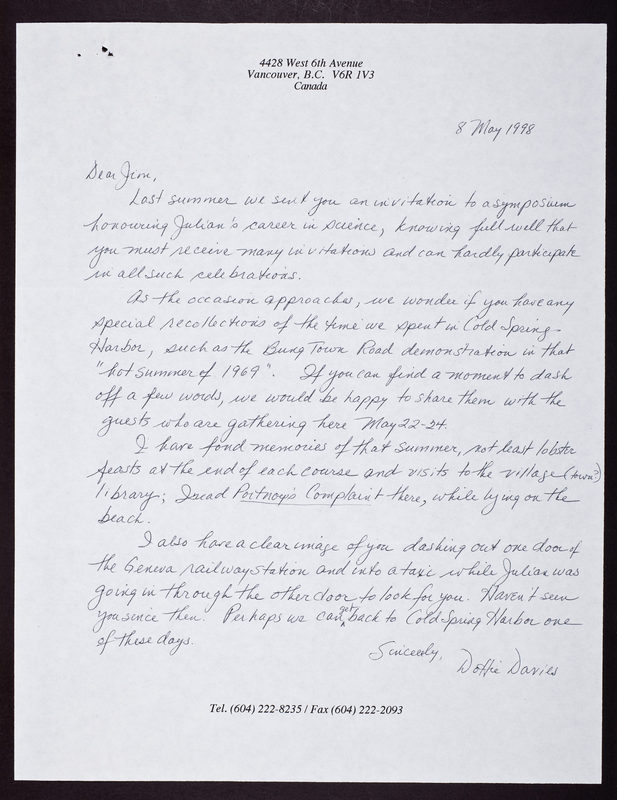 4428 West 6th Avenue
Vancouver, B.C. V6R 1V3
Canada
8 May 1998
Dear Jim,
Last summer we sent you an invitation to a symposium
honouring Julian's career in science, knowing full well that
you must receive many invitations and can hardly participate
in all such celebrations.
As the occasion approaches, we wonder if you have any
special recollections of the time we spent in Cold Spring
Harbor, such as the Bung Town Road demonstration in that
"hot summer of 1969". If you can find a moment to dash
off a few words, we would be happy to share them with the
guests who are gathering here May 22-24.
I have fond memories of that summer, not least lobster
feasts at the end of each course and visits to the village (town?)
library; I read Portnoy's Complaint there, while lying on the
beach.
I also have a clear image of you dashing out one door of
the Geneva railway station and into a taxi while Julian was
going in through the other door to look for you. Haven't seen
you since then. Perhaps we can get back to Cold Spring Harbor one
of these days.
Sincerely,
Dottie Davies
Tel. (604) 222-8235 / Fax (604) 222-2093